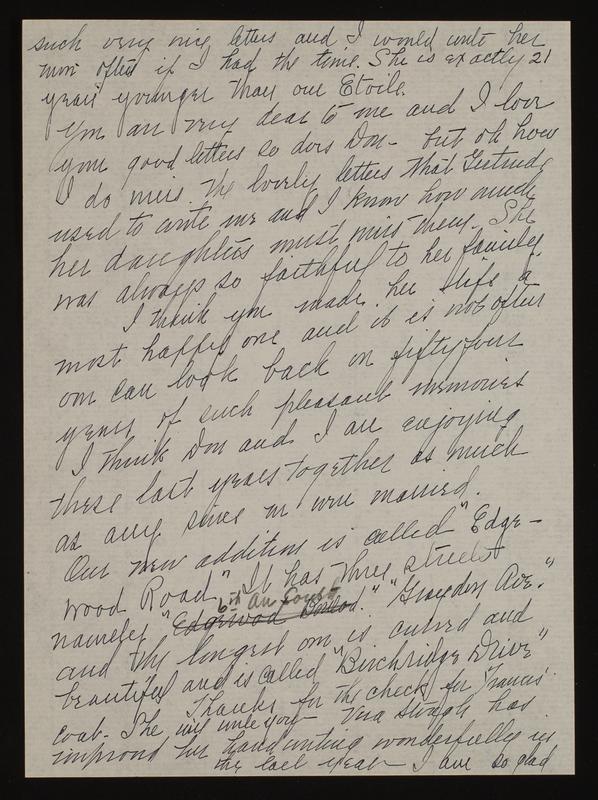 such very nice letters and I would write her
more often if I had the time. She is exactly 21
years younger than our Etoile.
You are very dear to me and I love
your good letters so does Don - but oh how
I do miss the lovely letters that Gertrude
used to write me and I know how much
her daughters must miss them. She
was always so faithful to her family.
I think you made her life a
most happy one and it is not often
one can look back on fifty four
years of such pleasant memories
I think Don and I are enjoying
these last years together as much
as any since we were married.
Our new addition is called "Edge-
wood Road" It has three streets
6th Ave South
namely "Edgewood Road." "Graydon Ave."
and the longest one is curved and
beautiful and is called "Birchridge Drive"
Thanks for the check for Francis'
coat. She will write you - Vera has
improved her handwriting wonderfully in
the last year I am so glad